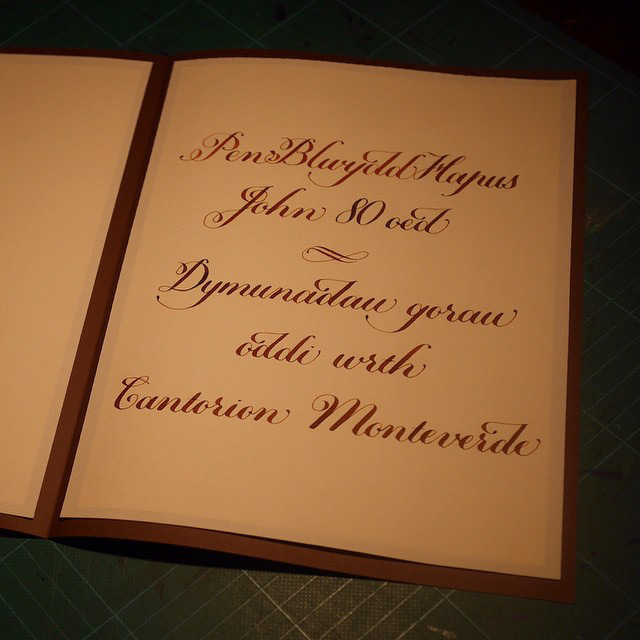 Pen Blwydd Hapus
John 80 oed
Dymuniadau gorau
oddi wrth
Cantorion Monteverde